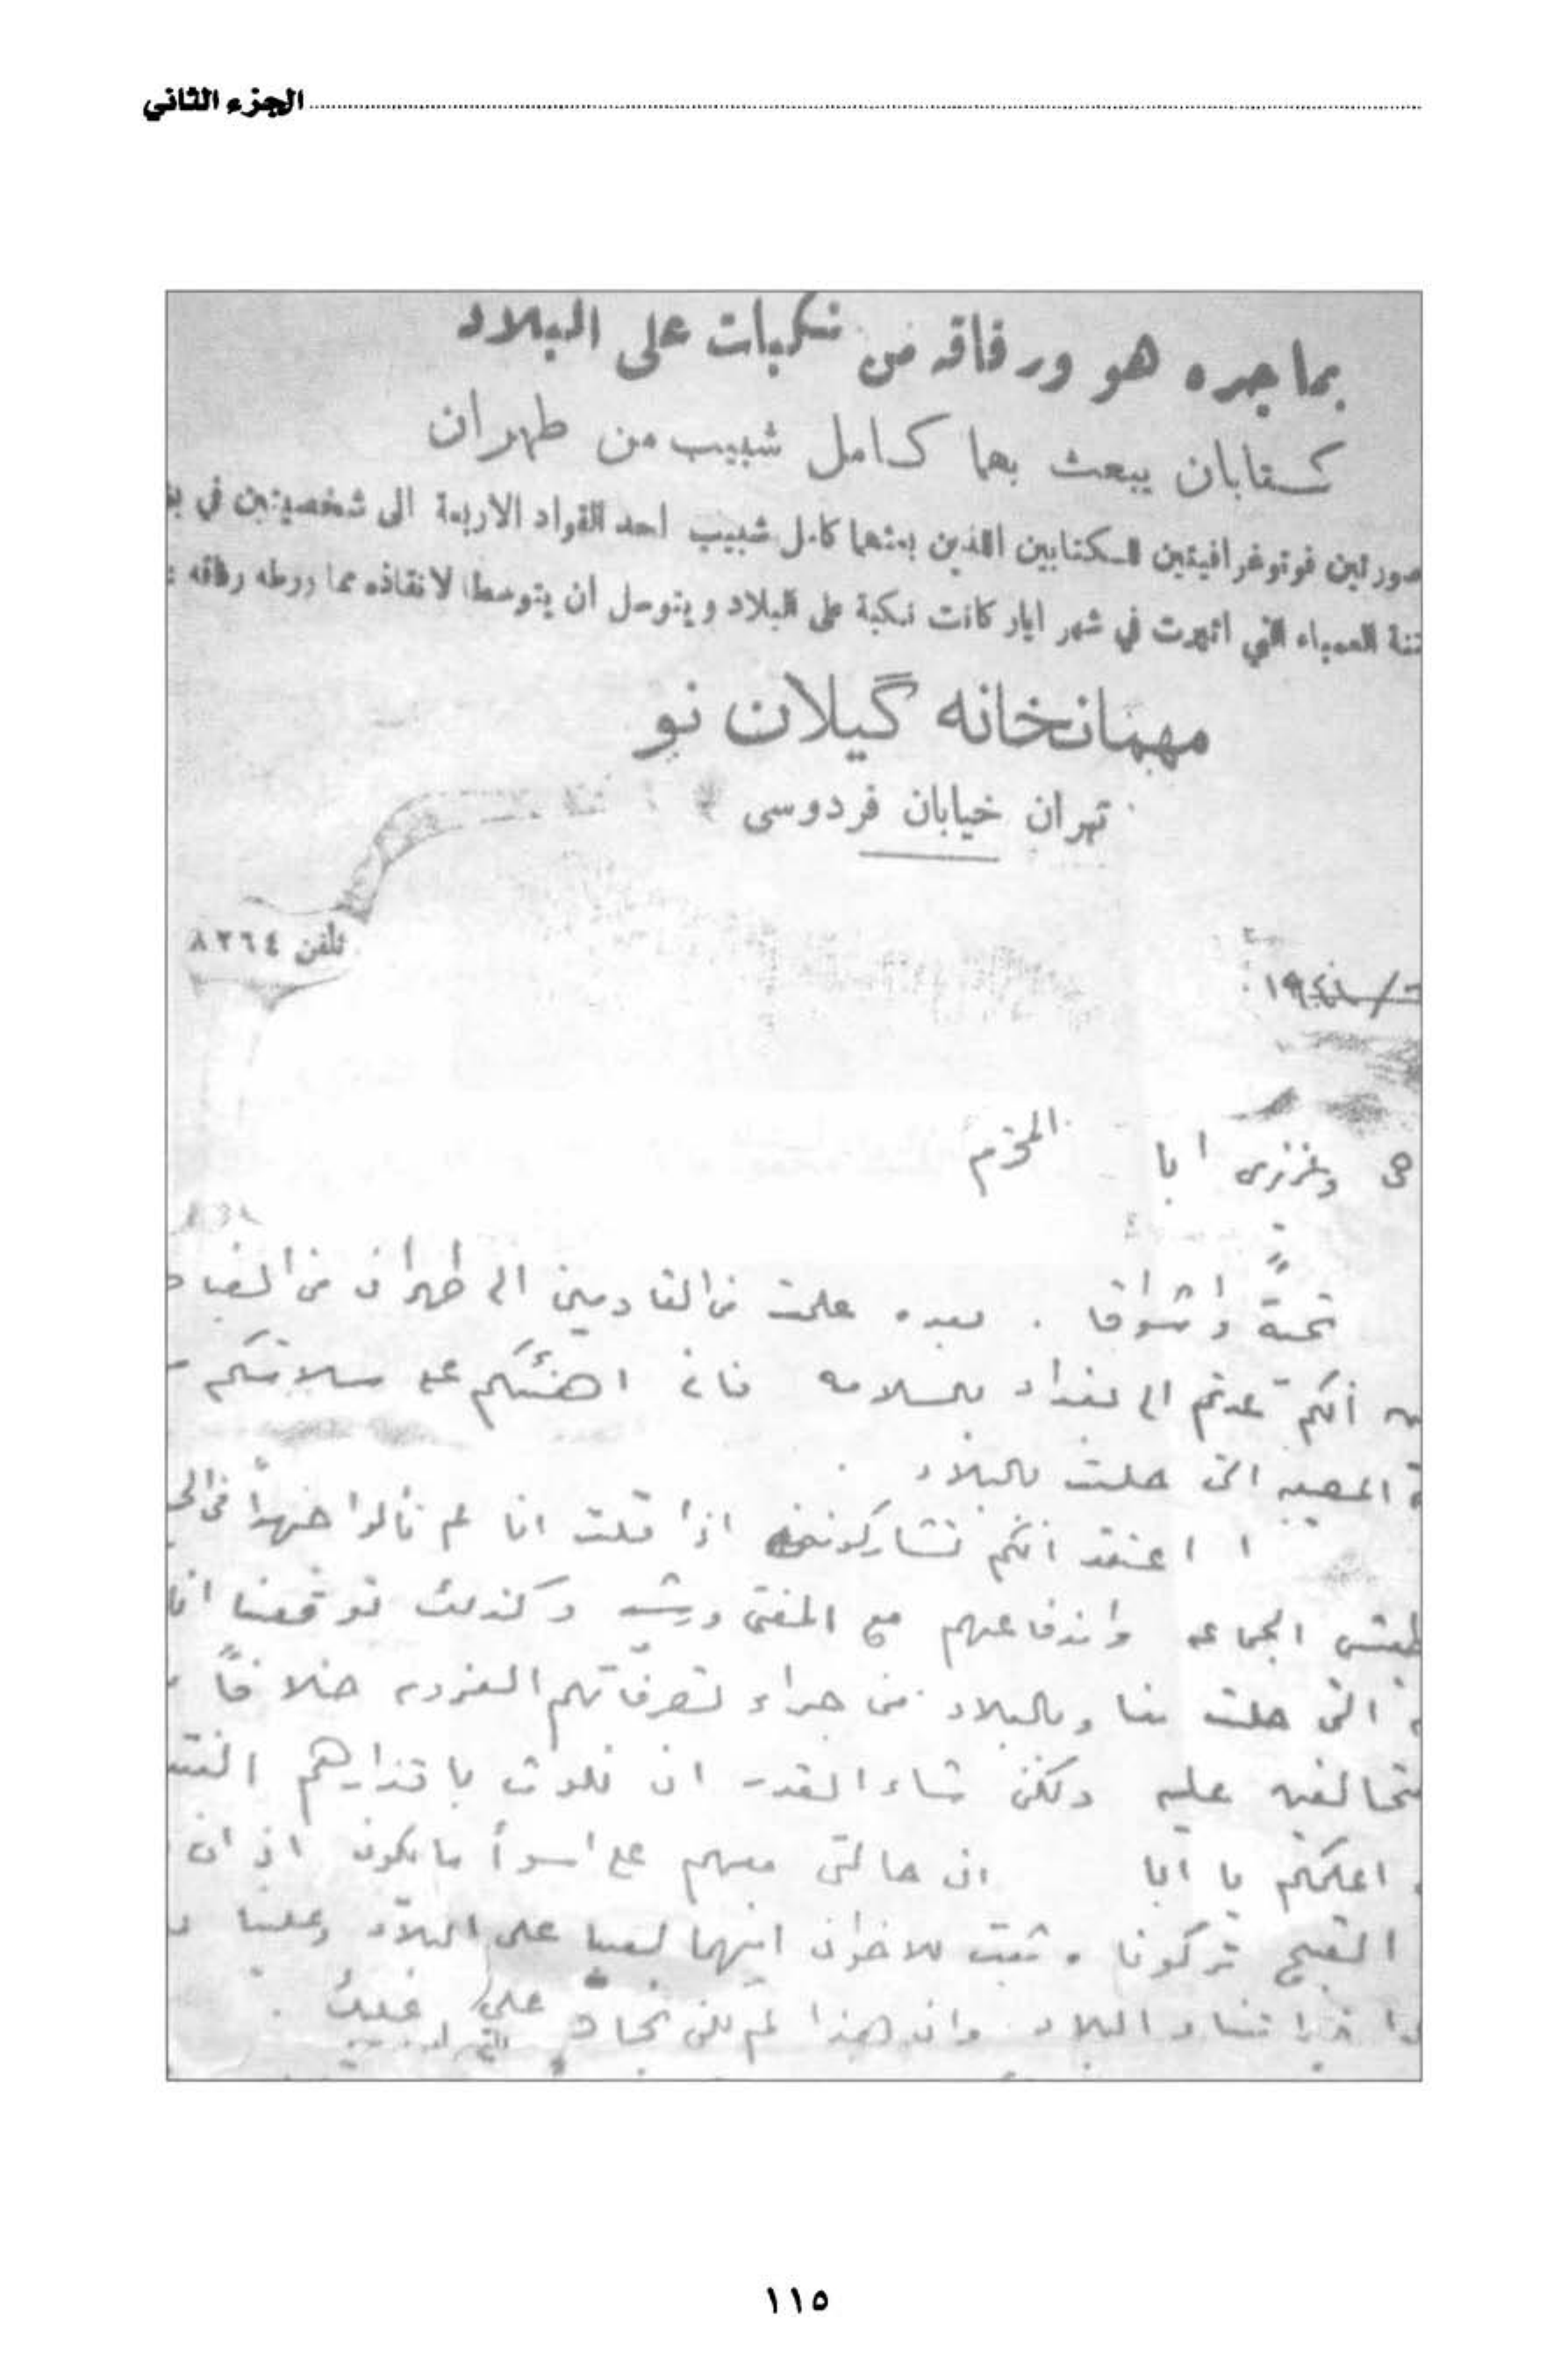 الجزء الثاني
بما جره هو ورفاقه من نكبات على البلاد
كتابان يبعث بهما كامل شبيب من طهران
صورتين فوتوغرافيتين للكتابين اللذين بعثهما كامل شبيب احد القواد الاربعة الى شخصيتين في
العمياء التي اثيرت في شهر ايار كانت نكبة على البلاد ويتوسل ان يتوسطا لانقاذه مما ورطه رفاقه
مهمانخانه گیلان نو
تهران خیابان فردوسی
تلفن ٨٢٦٤
وعزيزي ابا المحترم
تحية واشواقا . بعده علمت من القادمين الى طهران من
أنكم عدتم الى بغداد بالسلامه فاني اهنئكم على سلامتكم
المصيبه التي حلت بالبلاد .
اعتقد انكم تشاركونني اذا قلت انا لم نألوا جهداً في
طيش الجماعه واندفاعهم مع المفتي ورشيد وكذلك توقعنا
التي حلت بنا وبالبلاد من جراء تصرفاتهم الفرديه خلافاً
عليه ولكن شاء القدر ان نلوث باقذارهم
اعلمكم يا ابا ان حالتي معهم على اسوأ ما يكون اذ ان
القبيح تركونا وثبت للاخوان انهما لعبا على البلاد وعلينا
البلاد وان هذا لم يكن بخاف على
١١٥